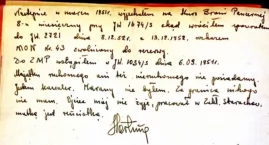 Następnie w marcu 1951r. wyjechałem na Kurs Broni Pancernej
8-o miesięczny przy JW 1474/3 skąd wróciłem spowrotem
do JW. 2721 dnia 8.12.52r. a 13.12.1952, rozkazem
MON Nr. 43 zwolniony do rezerwy.
Do ZMP wstąpiłem w JW 1034/3 dnia 6.03.1951r.
Majątku ruchomego ani też nieruchomego nie posiadamy.
Jestem kawaler. Karany nie byłem. Za granicą nikogo
nie mam. Ojciec mój nie żyje, pracował w Zakł. Starachow.
matka jest rencistką.